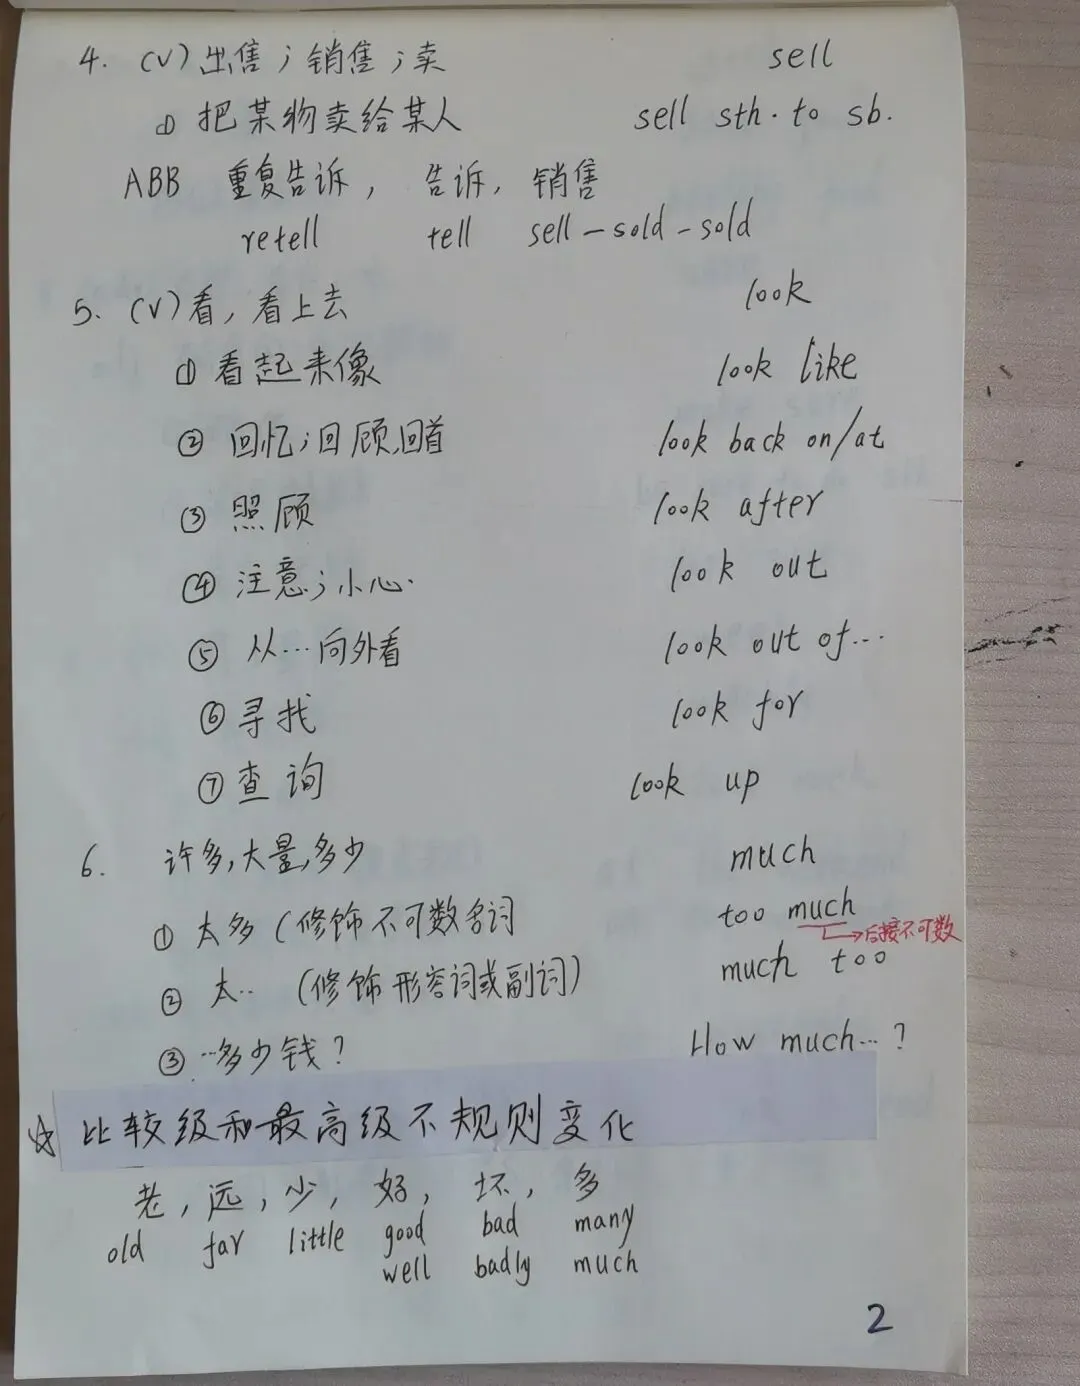 4. (V) 出售；销售；卖 sell
① 把某物卖给某人 sell sth. to sb.
ABB 重复告诉， 告诉， 销售
retell tell sell – sold – sold
5. (V) 看，看上去 look
① 看起来像 look like
② 回忆；回顾，回首 look back on/at
③ 照顾 look after
④ 注意；小心. look out
⑤ 从…向外看 look out of…
⑥ 寻找 look for
⑦ 查询 look up
6. 许多，大量，多少 much
① 太多（修饰不可数名词 too much
→后接不可数
② 太..（修饰形容词或副词） much too
③ …多少钱？ How much…?
☆ 比较级和最高级不规则变化
老，远，少，好，坏，多
old far little good bad many
well badly much
2